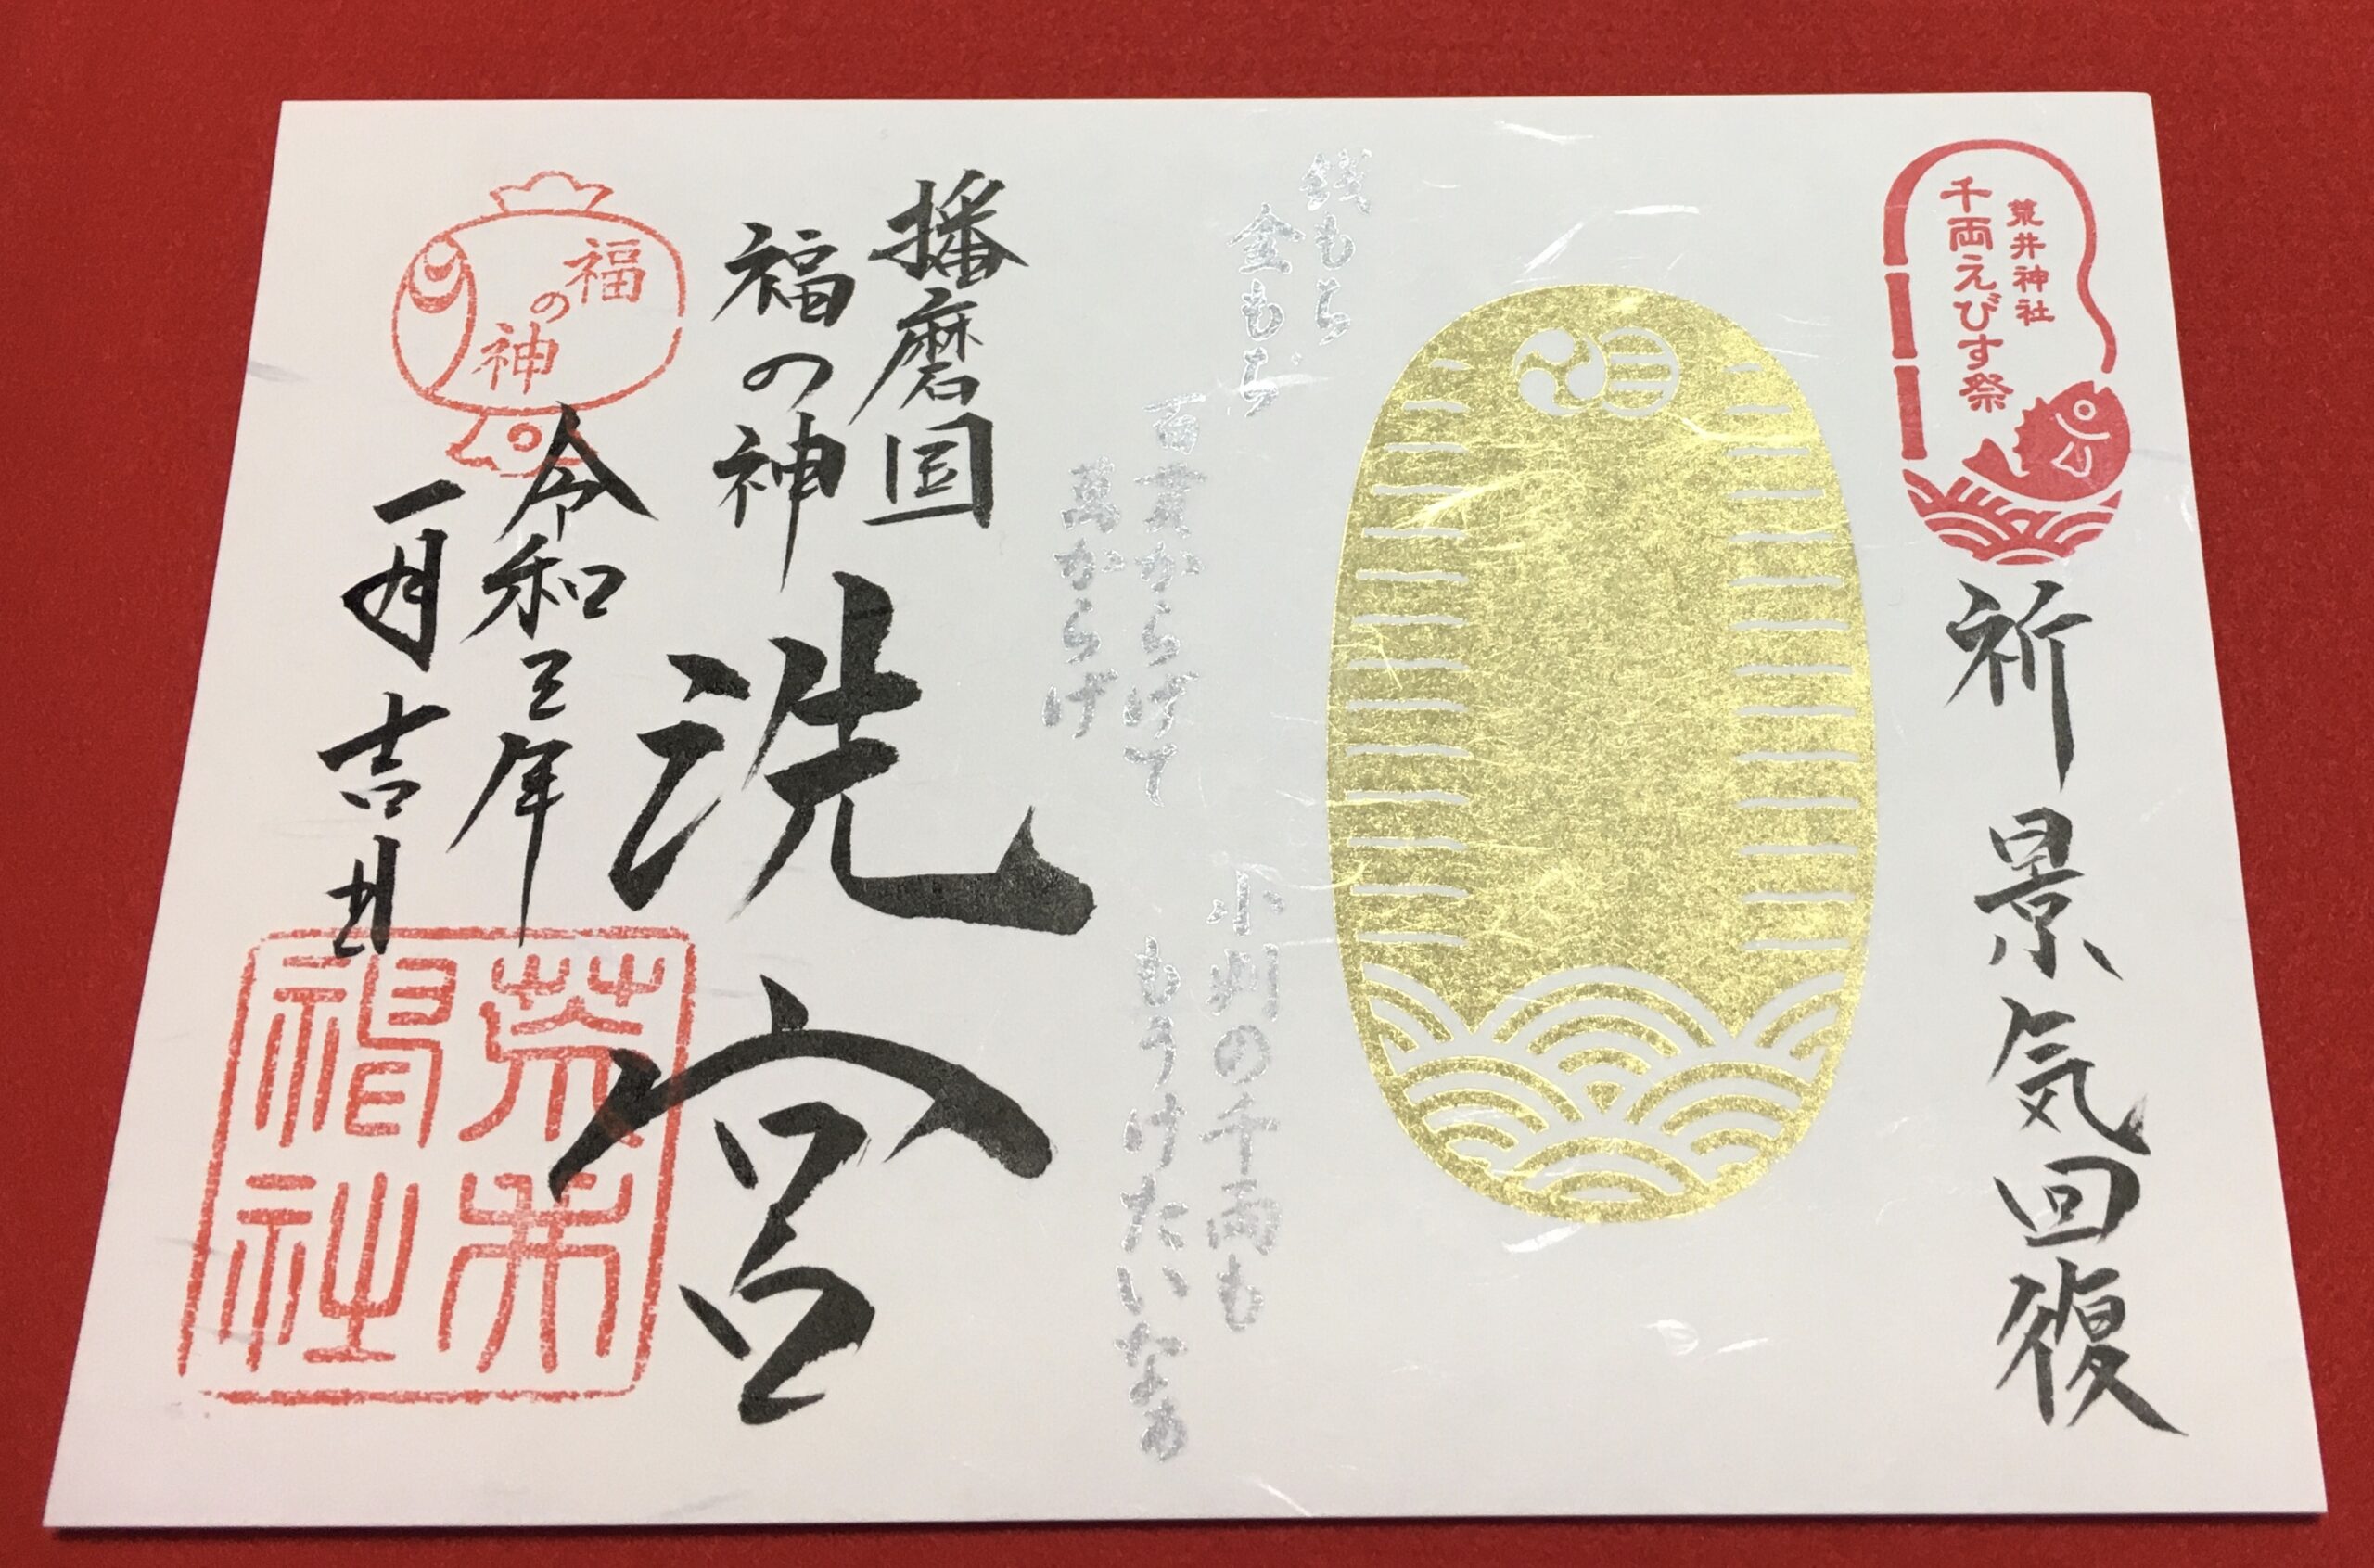 荒井神社
千両えびす祭
祈 景気回復
銭もち
金もち
百貫からげて
萬からげ
小判の千両も
もうけたいなあ
播磨国
福の神
洗宮
令和三年
一月吉日
福の神
荒井
神社